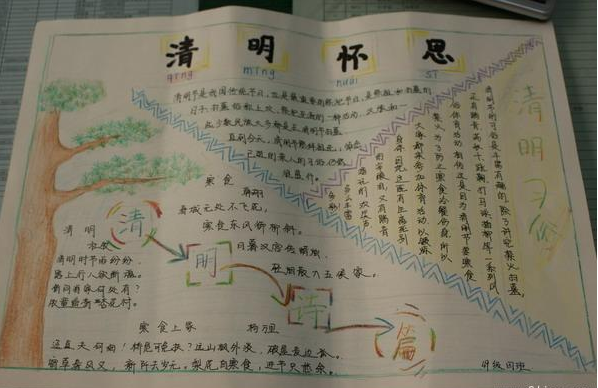 清 明 怀 思
qīng míng huái sī
清明节是我国传统节日,也是最重要的祭祀节日,是祭祖和扫墓的
日子。扫墓俗称上坟,祭祀死者的一种活动。汉族和一
些少数民族大多都是在清明节扫墓。
直到今天,清明节祭拜祖先,悼念
已故的亲人的习俗仍很
盛行。
清明习俗
清明节的习俗是丰富有趣的,除了讲究禁火、扫墓,
还有踏青、荡秋千、蹴鞠、打马球、插柳等一系列风
俗体育活动。相传这是因为清明节要寒食
禁火,为了防止寒食冷餐伤身,所以
大家都来参加体育活动,以锻炼
身体。
寒食
韩翃
春城无处不飞花,
寒食东风御柳斜。
日暮汉宫传蜡烛,
轻烟散入五侯家。
清明
杜牧
清明时节雨纷纷,
路上行人欲断魂。
借问酒家何处有?
牧童遥指杏花村。
清
明
诗
篇
寒食上冢 杨万里
迳直夫何细!桥危可免扶?远山枫外淡,破屋麦边孤。
宵草春风又,新阡去岁无。梨花自寒食,进节只愁余。
四班